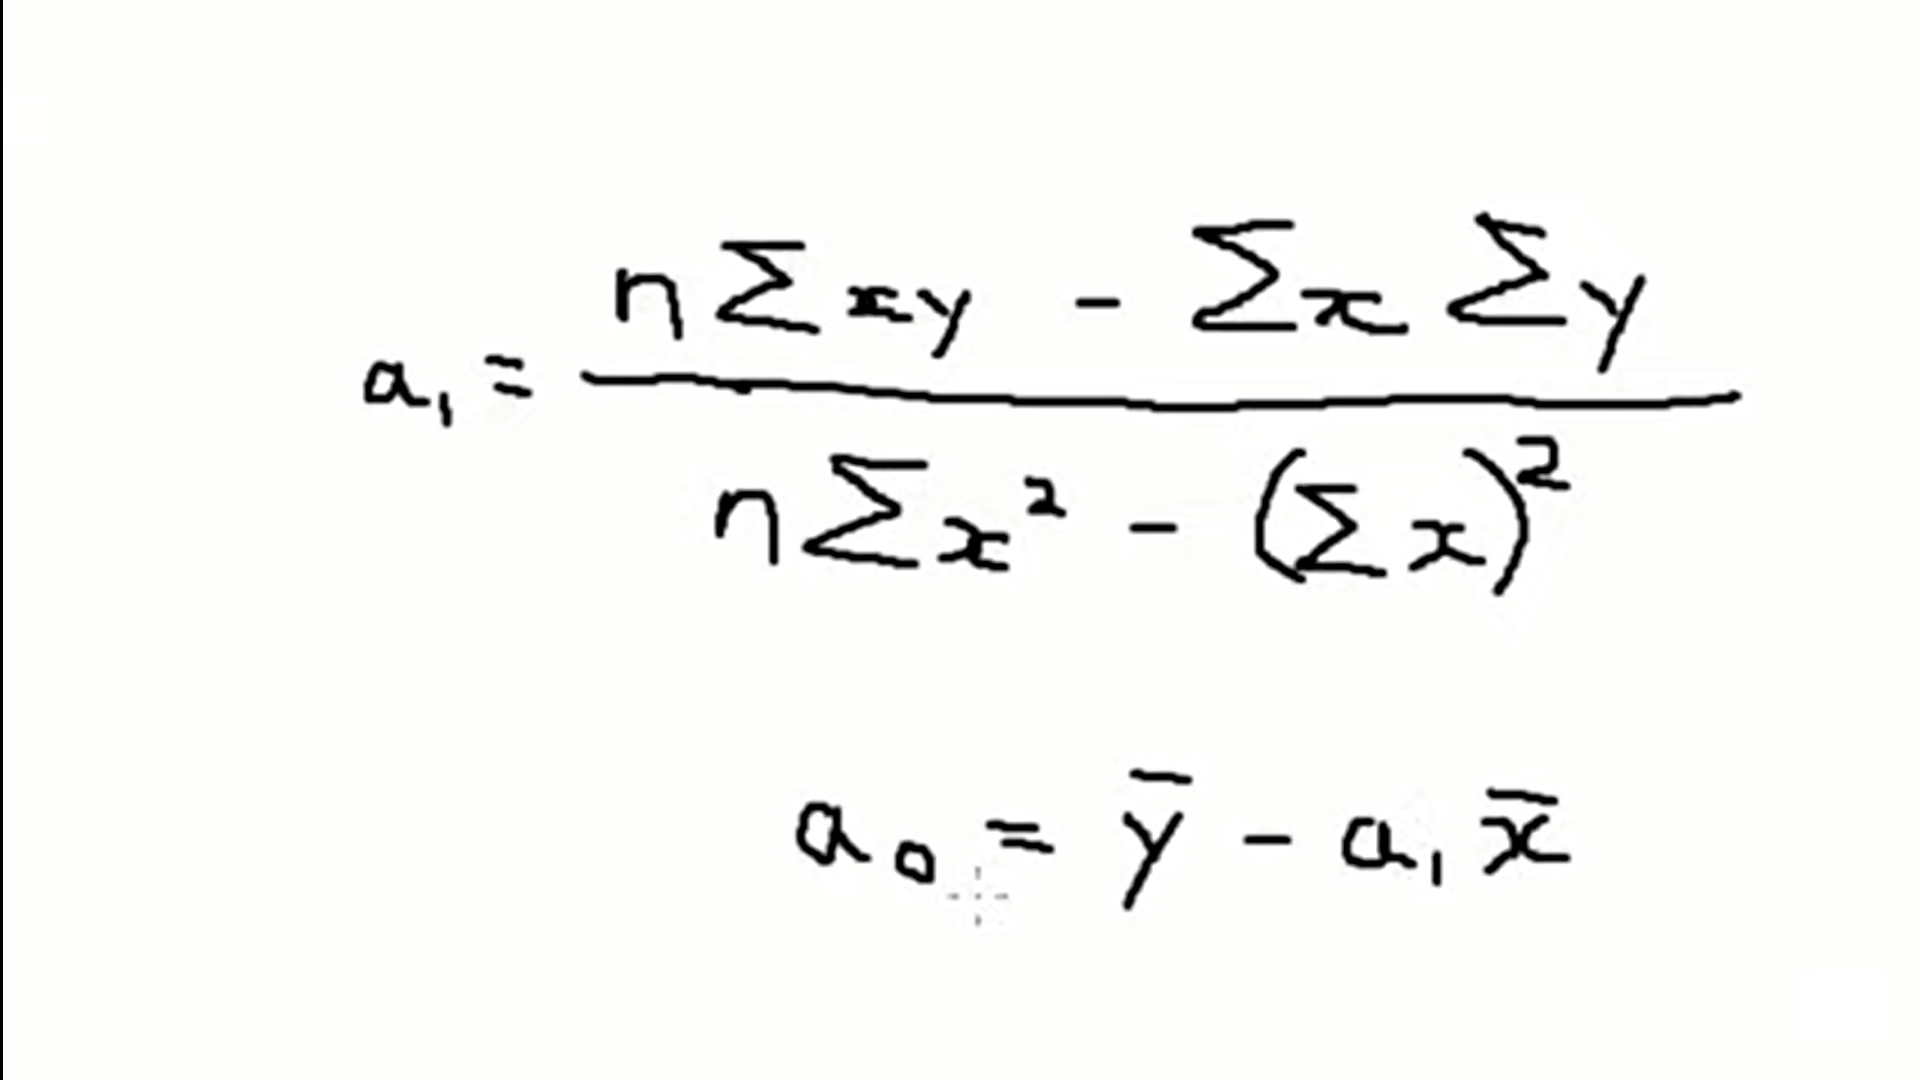 a₁ = (n∑xy - ∑x ∑y) / (n∑x² - (∑x)²)
a₀ = y̅ - a₁x̅